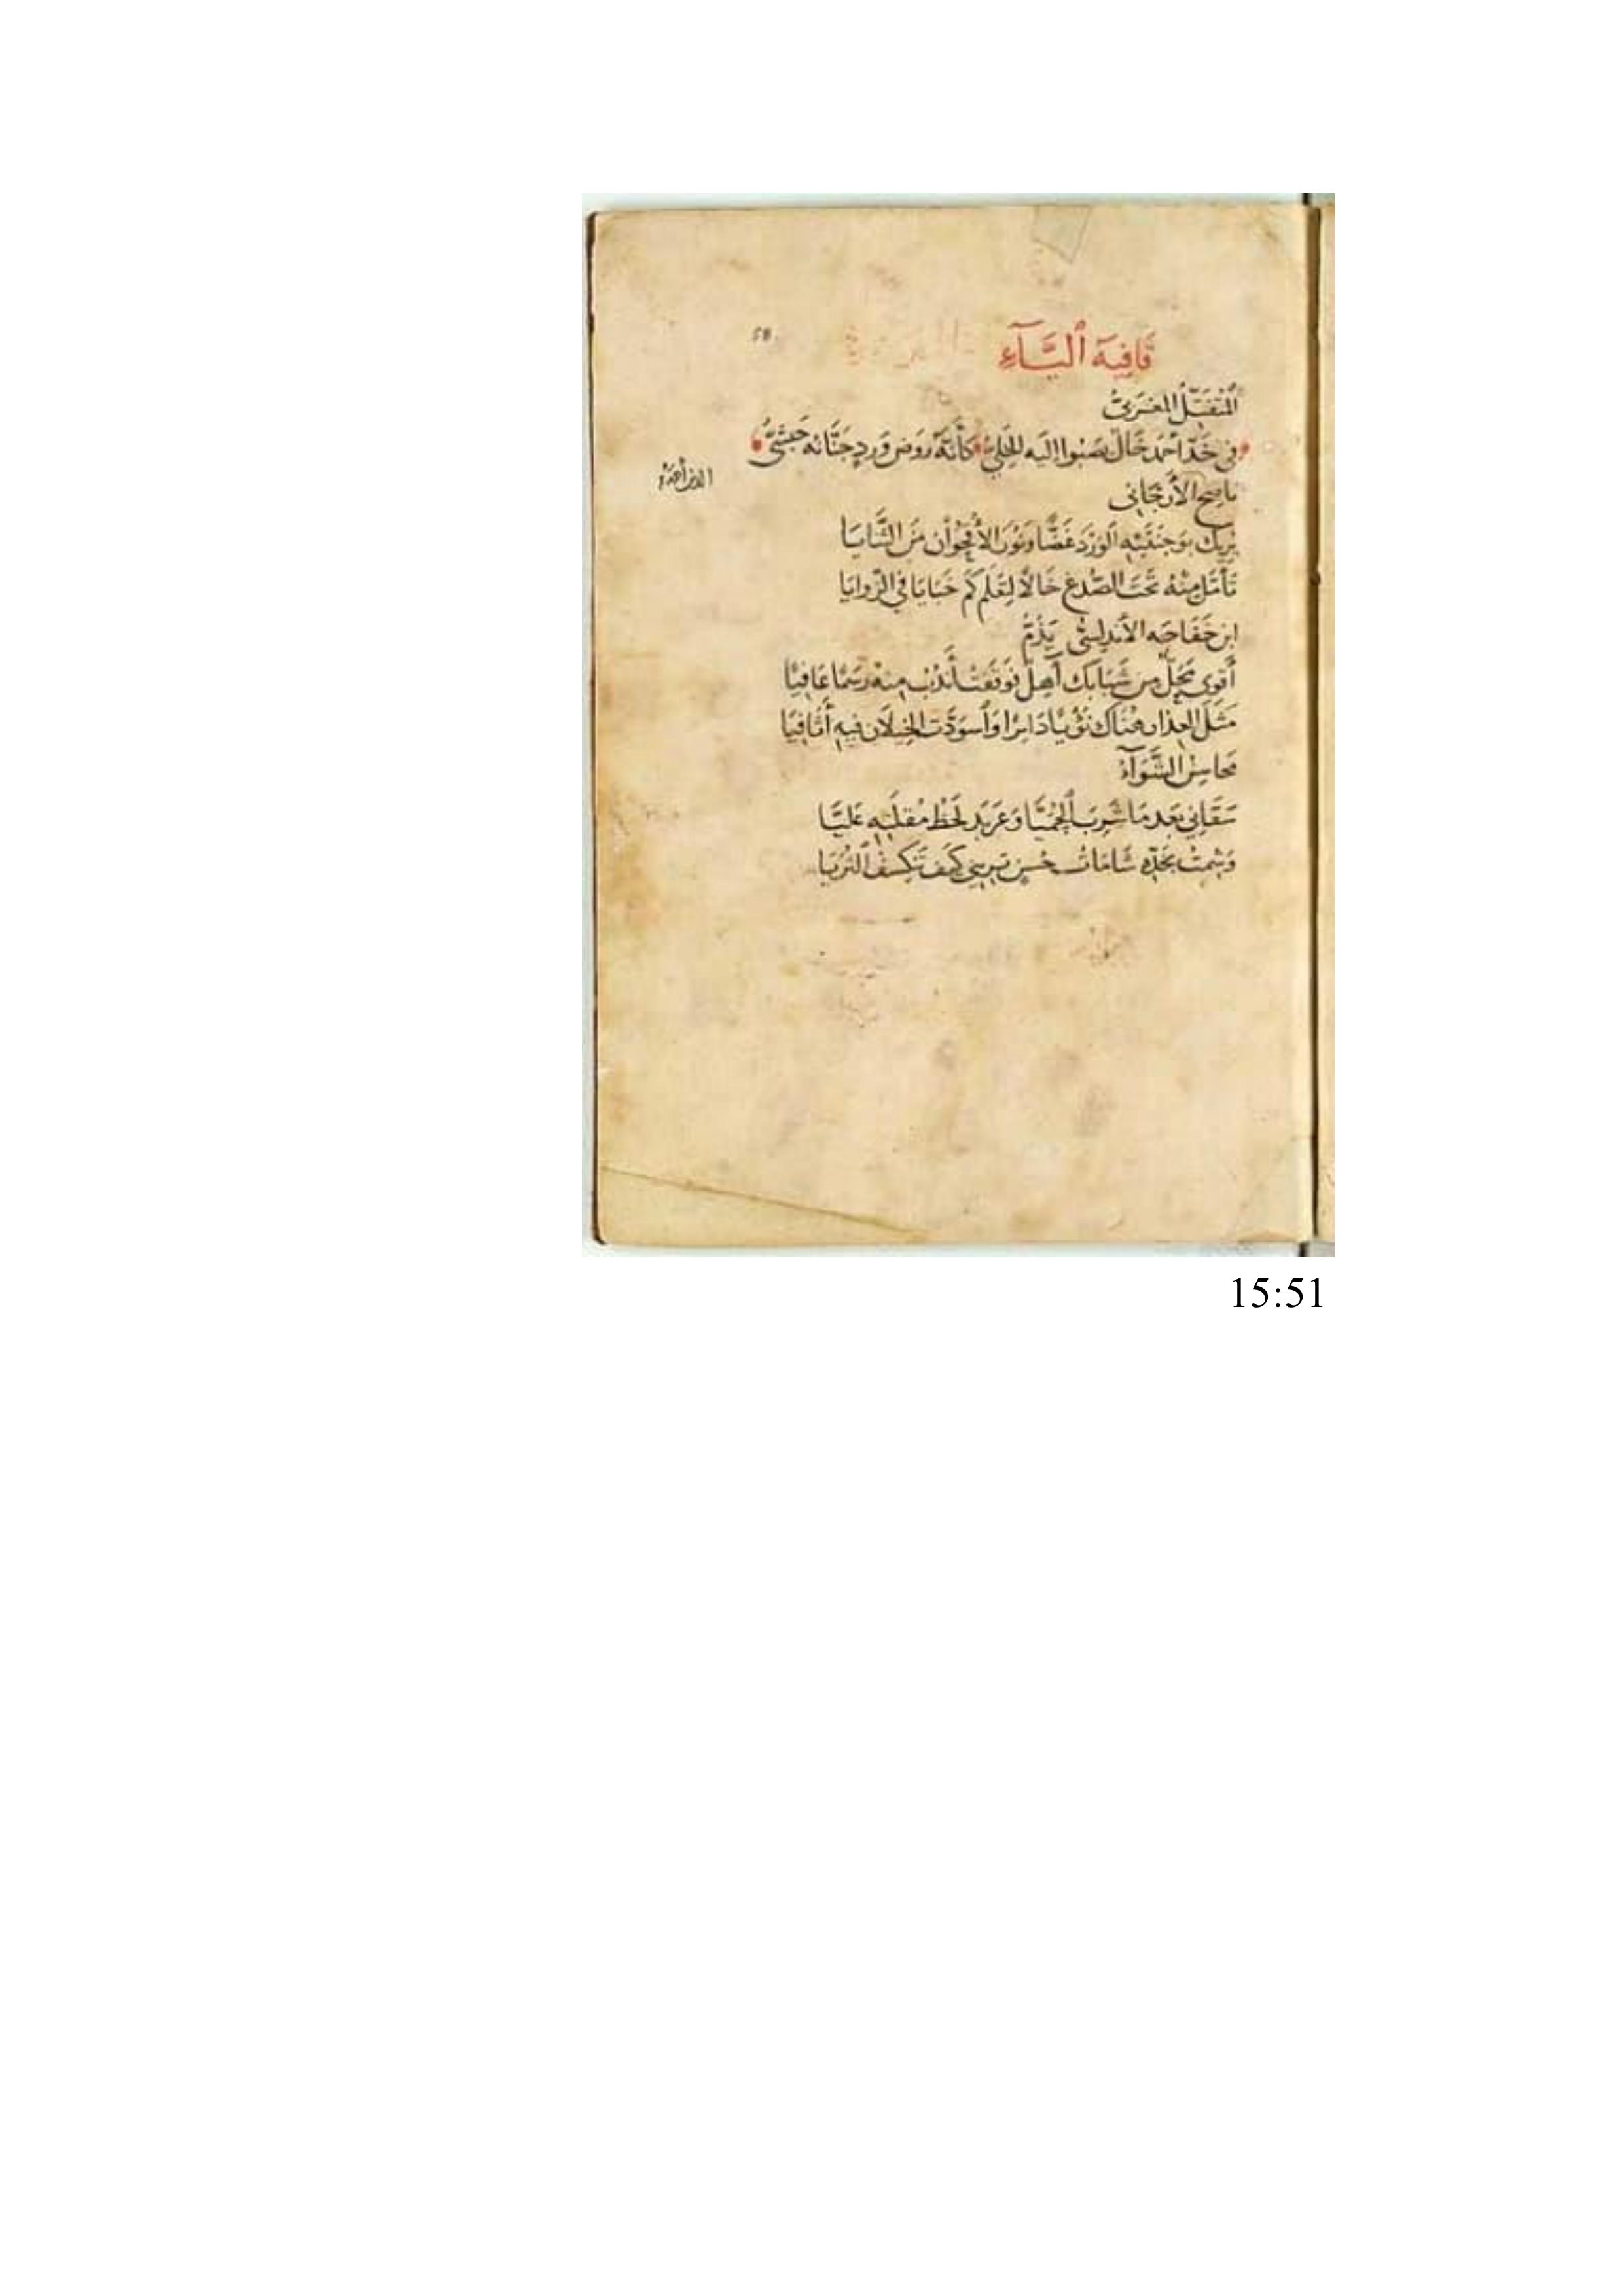 قَافِيَة ٱليَّآءِ
58
المُتَفَتِّل المغربيّ
في خَدّ أحمَد خَال يَصبُوا إليَه الخَلِيّ كَأنَّهُ رَوض وَردٍ جَنَّانه حَبَشيُّ
ناصح الأرّجَاني
يُريك بوَجنَتَيْهِ الوَرْدَ غَضًّا وَنَوْرَ الأُقْحُوَان مَنَ الثَّنَايَا
تَأمَّل مِنْهُ تَحتَ الصُّدغ خَالًا لتَعلَم كَم خَبَايَا في الزَّوايَا
ابن خَفَاجَه الأندلسيّ يَذُمّ
أقوى مَحَلّ من شَبَابك آهِلٌ فَوَقَفتُ أندُبُ منه رَسمًا عَافيًا
مَثَلَ العِذار هُنَاك نُؤيًا دَاثِرًا وَٱسوَدَّت الخِيلَان فيه أثَافِيَا
مَحاسِن الشَّوَآءُ
سَقَاني بَعد مَا شَربَ ٱلحُمَيَّا وَعَربَد لَحظ مُقلَتَيه عَليَّا
وَشِمتُ بخَدّه شَامَات حُسنٍ تُريني كَيف تَنكَسفُ ٱلثُّرَيَّا
15:51